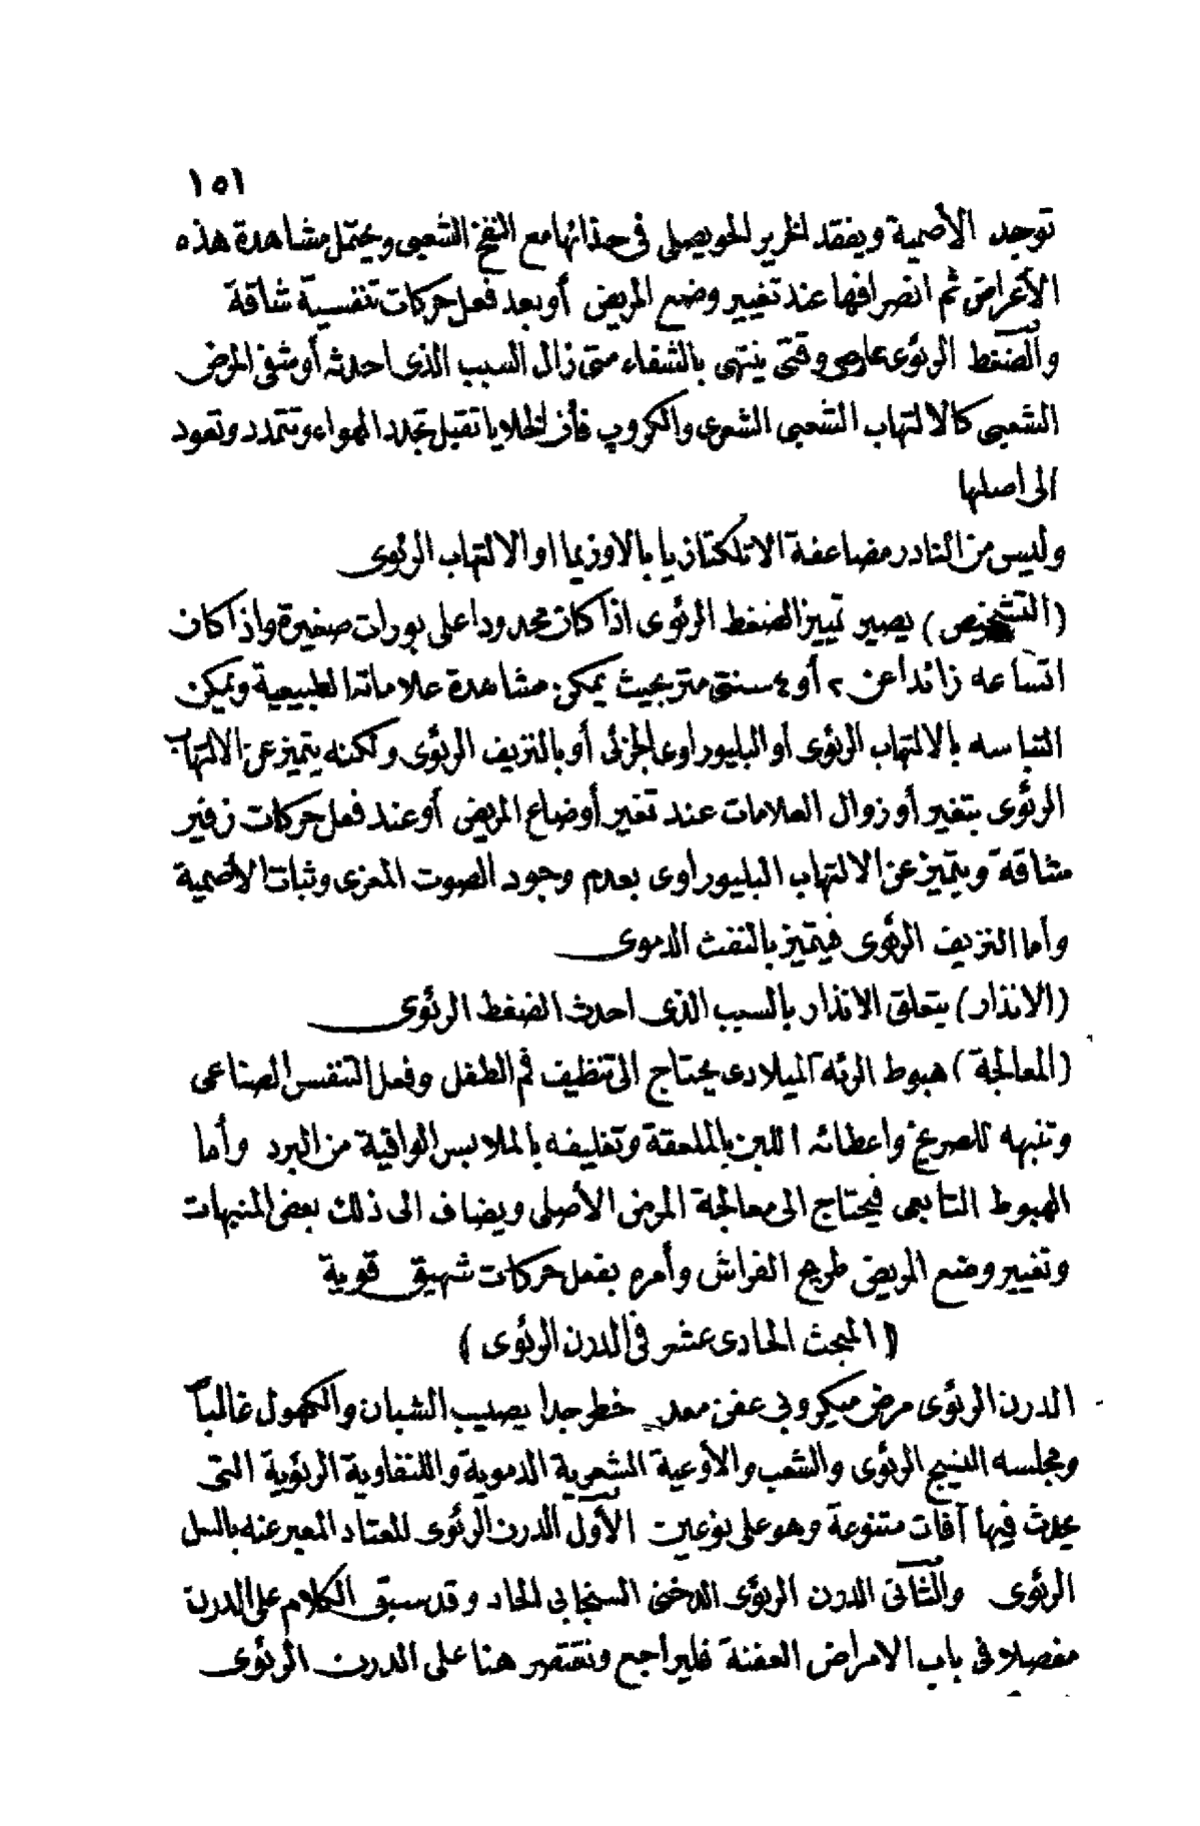 ١٥١
توجد الأصمية ويفقد الخرير الحويصلى فى حذائها مع النفخ الشعبى ويحتمل مشاهدة هذه
الأعراض ثم انصرافها عند تغيير وضع المريض أو بعد فعل حركات تنفسية شاقة
والضغط الرئوى عارضى وقتى ينتهى بالشفاء متى زال السبب الذى احدثه أو شفى المرض
الشعبى كالالتهاب الشعبى الشعرى والكروب فأن الخلايا تقبل تجدد الهواء وتتمدد وتعود
الى اصلها
وليس من النادر مضاعفة الاتلكتازيا بالاوزيما او الالتهاب الرئوى
(التشخيص) يصير تمييز الضغط الرئوى اذا كان محدودا على بورات صغيرة واذا كان
اتساعه زائدا عن ٢ أو ٤ سنتى متر بحيث يمكن مشاهدة علاماته الطبيعية ويمكن
التباسه بالالتهاب الرئوى أو البليوراوى الجزئى أو بالنزيف الرئوى ولكنه يتميز عن الالتهاب
الرئوى بتغير أو زوال العلامات عند تغير أوضاع المريض أو عند فعل حركات زفير
شاقة ويتميز عن الالتهاب البليوراوى بعدم وجود الصوت المعزى وثبات الأصمية
وأما النزيف الرئوى فيتميز بالنفث الدموى
(الانذار) يتعلق الانذار بالسبب الذى احدث الضغط الرئوى
(المعالجة) هبوط الرئة الميلادى يحتاج الى تنظيف فم الطفل وفعل التنفس الصناعى
وتنبهه للصريخ واعطائه اللبن بالملعقة وتغليفه بالملابس الواقية من البرد وأما
الهبوط التابعى فيحتاج الى معالجة المرض الأصلى ويضاف الى ذلك بعض المنبهات
وتغيير وضع المريض طريح الفراش وأمره بفعل حركات شهيق قوية
(المبحث الحادى عشر فى الدرن الرئوى)
الدرن الرئوى مرض ميكروبى عفن معد خطر جدا يصيب الشبان والكهول غالبا
ومجلسه النسيج الرئوى والشعب والأوعية الشعرية الدموية واللنفاوية الرئوية التى
يحدث فيها آفات متنوعة وهو على نوعين الأول الدرن الرئوى المعتاد المعبر عنه بالسل
الرئوى والثانى الدرن الرئوى الدخنى السنجابى الحاد وقد سبق الكلام على الدرن
مفصلا فى باب الامراض العفنة فليراجع ونقتصر هنا على الدرن الرئوى